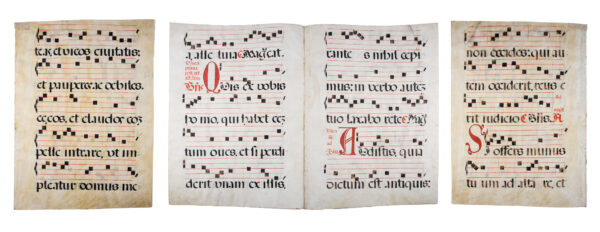 teas et vicos civitatis:
et pauperes ac debiles,
cęcos, et claudos cōz
pelle intrare, ut im
pleatur domus me
a, alleluna. Magnificat.
Quis ex vobis
homo, qui habet cēz
tum oves, et si perdi
derit unam ex illis,
rante s nihil cepi
mus: in verbo autez
tuo laxabo rete. Mag̃t
Audistis, quia
dictum est antiquis:
non occides: qui au
tem occiderit, reus e
rit iudicio. Bñs. A.
Si offers munus
tuum ad altare, et